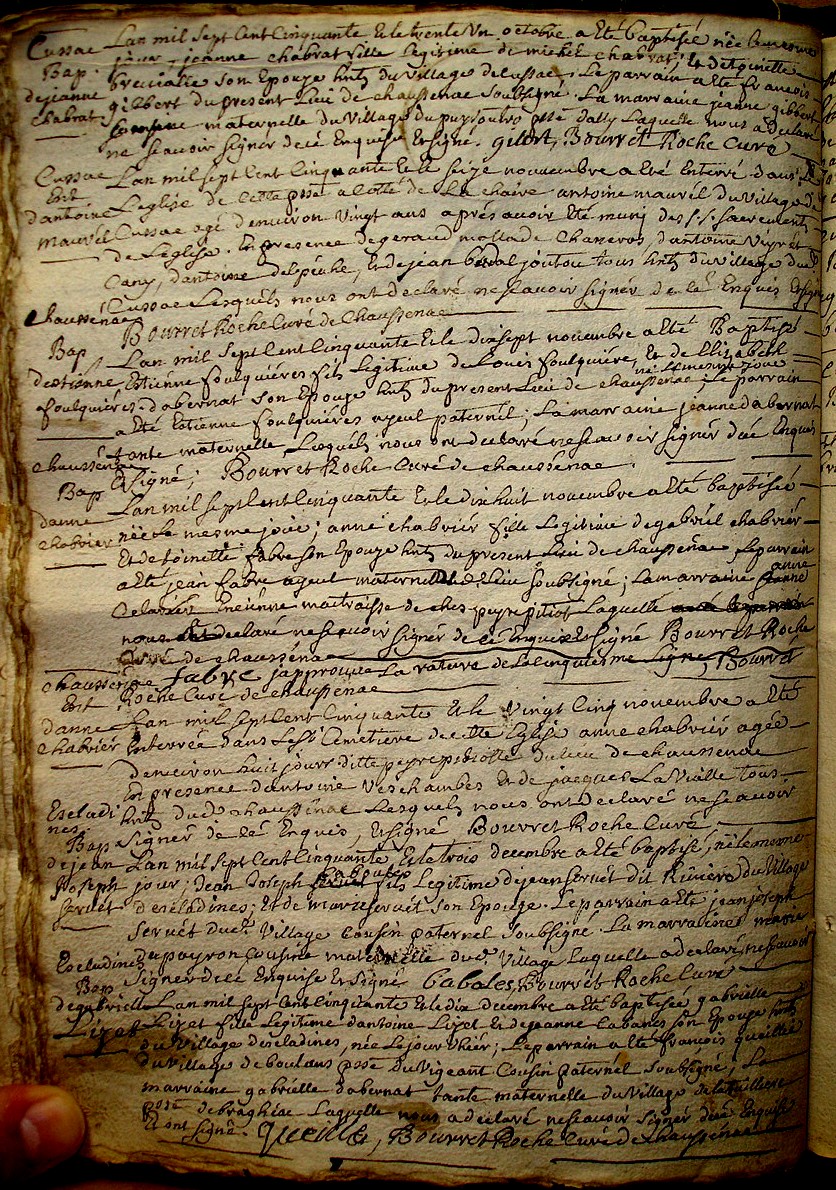 Cussac Lan mil sept Cent Cinquante Et le trente Un octobre a Eté baptisée née le mesme
Bap. jour, jeanne chabrat fille legitime de michel chabrat, Et de toinette
de jeanne son Epouze hnts du village de Cussac. Le parrain a Eté francois
chabrat gilbert du present Lieu de chaussenac soubsigné. La marraine jeanne gibbert
maternelle du village du puysoutro psse dally Laquelle nous a declaré
ne scavoir signer de cé Enquise Et signé. gilbert, Bourret Roche Curé
Cussac Lan mil sept Cent Cinquante Et le seize novembre a eté Enterré dans
Ent Leglise de Cette psse a Cotté de La chaire antoine maurél du village de
dantoine Cussac agé denviron vingt ans aprés avoir Eté muni des s.s. sacrements
maurél de Leglise. En presence de geraud mollat de Chanvros, dantoine
Cany, dantoine delpeuhe, Et de jean joutou tous hnts du village dud
Cussac Lesquéls nous ont declaré ne scavoir signér de cé Enquis Et signé
chaussénac Bourret Roche Curé de Chaussenac
Bap Lan mil sept Cent Cinquante Et le dixsept novembre a Eté Baptisé
destienne Estienne foulquiéres fils Legitime de Louis foulquiére, Et de Elizabeth
né le mesme jour
foulquiéres dabernat son Epouze hnts du present Lieu de chaussenac. Le parrain
a Eté Estienne foulquiéres ayeul paternél; La marraine jeanne dabernat
tante maternelle, Lesquéls nous ont declaré ne scavoir signér de cé Enquis
chaussénac Et signé; Bourret Roche Curé de chaussénac.
Bap Lan mil sept Cent Cinquante Et le dix huit novembre a Eté baptisée
danne née le mesme jour; anne chabriér fille Legitime de gabriél chabriér
chabriér Et de toinette fabre son Epouze hnts du present Lieu de chaussénac, Le parrain
a Eté jean fabre ayeul maternél dud. Lieu soubsigné; La marraine anne
Celariér Enciénne maitraisse de ches peyrepitiot Laquelle
nous a declaré ne scavoir signér de cé Enquise Et signé Bourret Roche
Curé de chaussénac
chaussenac fabre japprouve La rature de La cinquiesme Ligne, Bourret
Ent Roche Curé de chaussenac
danne Lan mil sept Cent Cinquante Et le vingt Cinq novembre a Eté
chabriér Enterrée dans Le st Cemetiere de cette Eglise anne chabriér agée
denviron huit jours ditte peyrepidiotte du lieu de chaussenac
En presance dantoine Veschambes Et de jacques La vialle tous
Escladi hnts dud chaussénac Lesquels nous ont declaré ne scavoir
nes signer de cé Enquis, Et signé Bourret Roche Curé,
Bap
de jean Lan mil sept Cent Cinquante, Et le trois decembre a Eté baptisé, né le mesme
joseph jour; Jean Joseph fils Legitime de jean servét dit Riviére du village
servét descladines; Et de marie servét son Epouze. Le parrain a Eté jean joseph
servét dud. village Cousin paternel soubsigné. La marraine marie
Escladines dupeyron Cousine maternelle dud. village Laquelle a declaré ne scavoir
Bap signer de cé Enquise Et signé Cabales, Bourret Roche Curé
de gabrielle Lan mil sept Cent Cinquante Et le dix decembre a Eté baptisée gabrielle
Lizet Lizet fille Legitime dantoine Lizet Et de jeanne Cabanes son Epouze hnts
du village descladines, née Le jour dhiér; Le parrain a Eté francois queille
du village de boulans psse du vigeant Cousin paternél soubsigné; La
marraine gabrielle dabernat tante maternelle du village de
psse de braghéac Laquelle nous a declaré ne scavoir signer de cé Enquise
Et ont signé. queille, Bourret Roche Curé de chaussenac